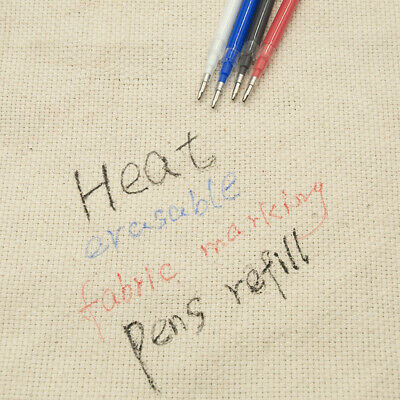 Heat
erasable
fabric marking
pens refill